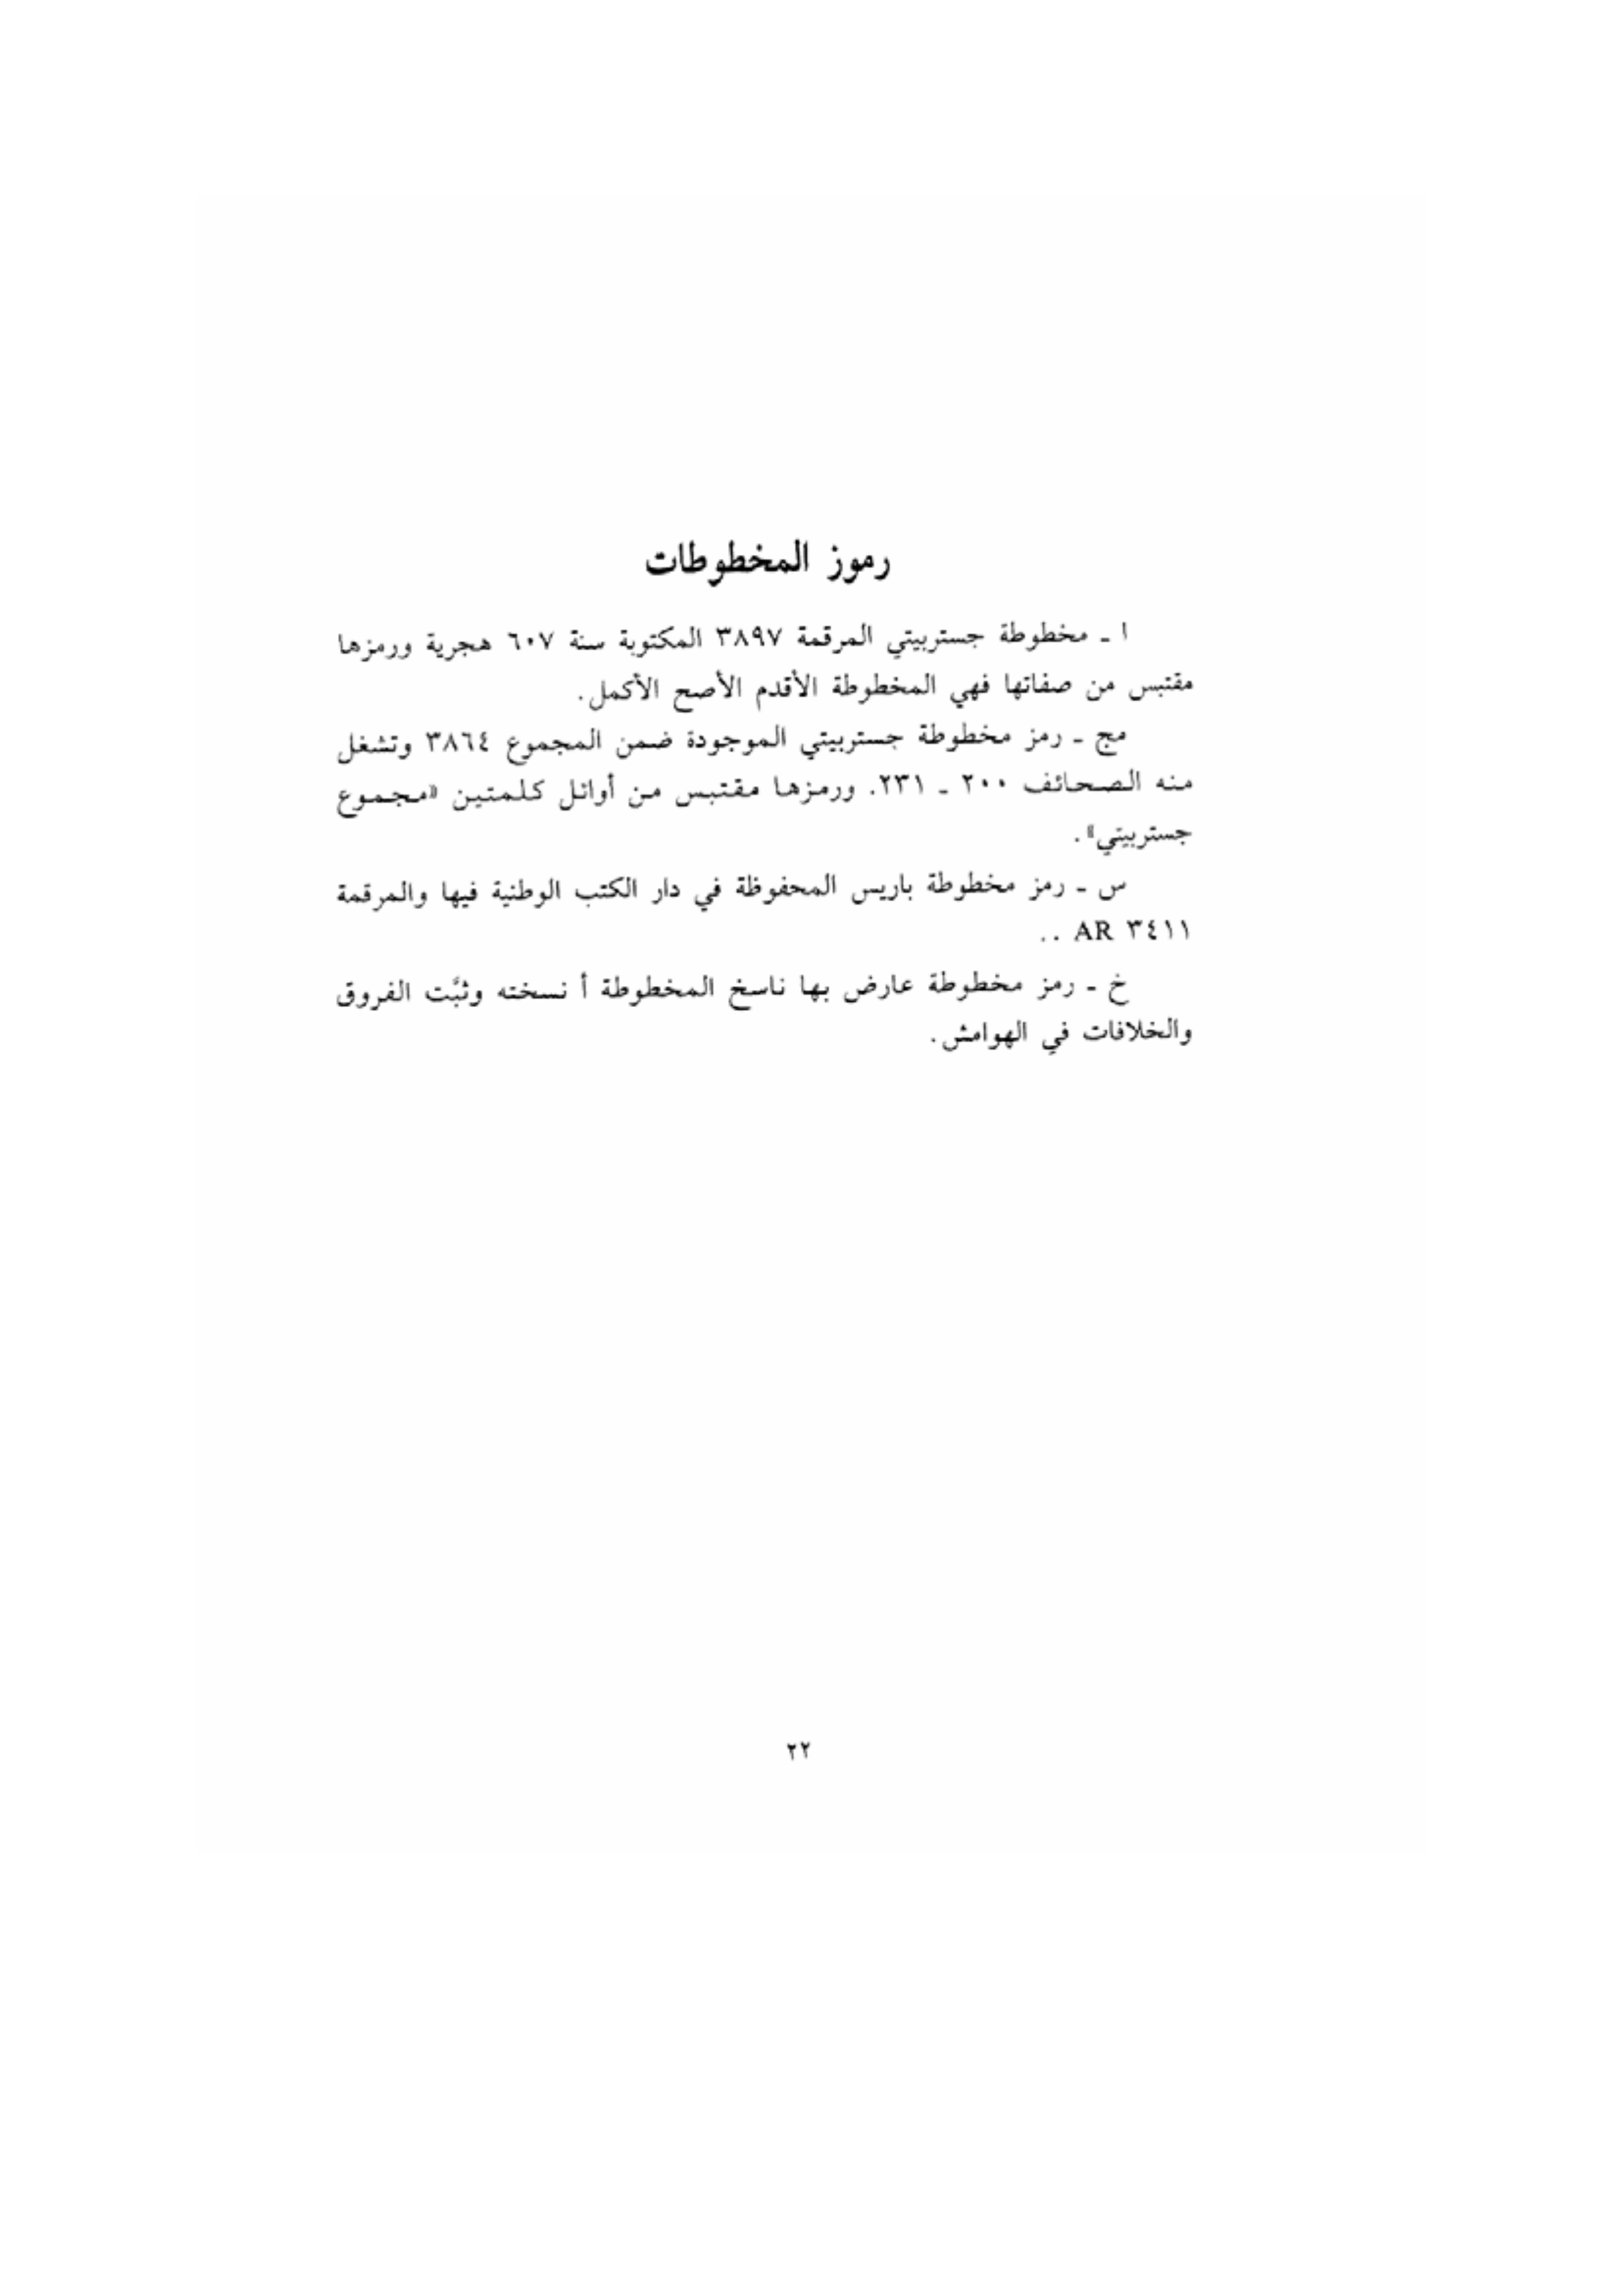 رموز المخطوطات
ا ـ مخطوطة جستربيتي المرقمة ٣٨٩٧ المكتوبة سنة ٦٠٧ هجرية ورمزها
مقتبس من صفاتها فهي المخطوطة الأقدم الأصح الأكمل.
مج ـ رمز مخطوطة جستربيتي الموجودة ضمن المجموع ٣٨٦٤ وتشغل
منه الصحائف ٢٠٠ ـ ٢٣١. ورمزها مقتبس من أوائل كلمتين «مجموع
جستربيتي».
س ـ رمز مخطوطة باريس المحفوظة في دار الكتب الوطنية فيها والمرقمة
٣٤١١ AR ..
خ ـ رمز مخطوطة عارض بها ناسخ المخطوطة أ نسخته وثبَّت الفروق
والخلافات في الهوامش.
٢٢